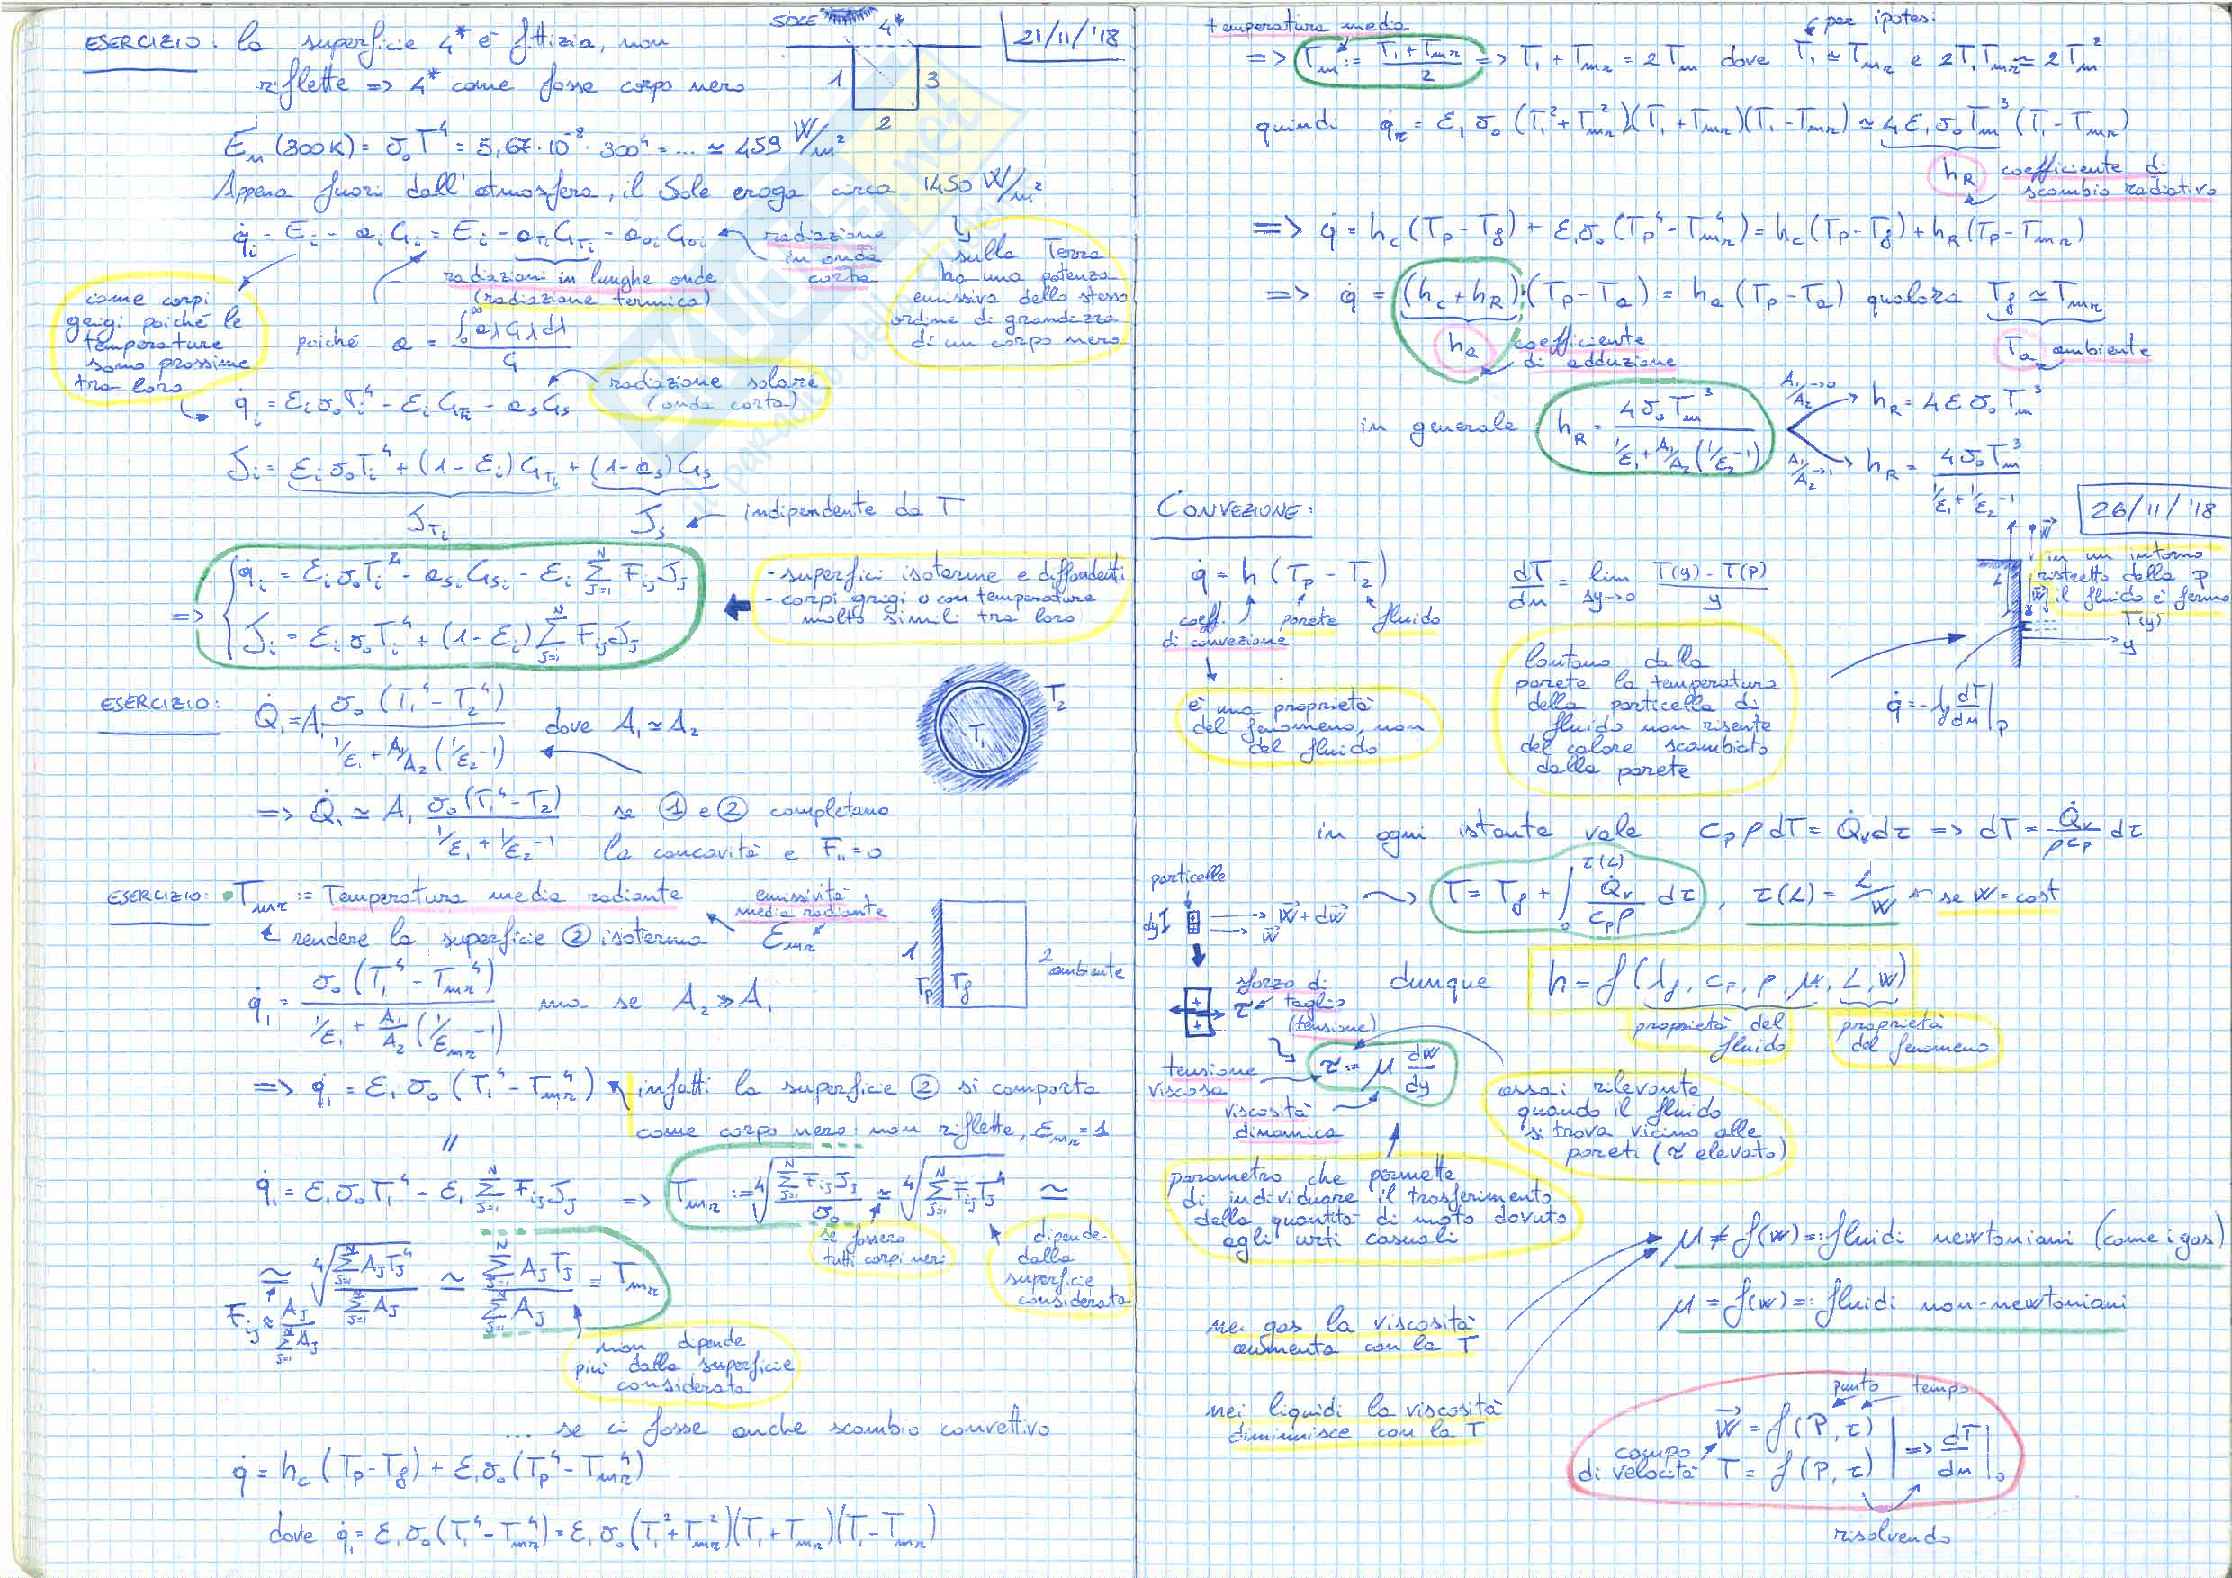 ESERCIZIO: la superficie 4* è fittizia, non
riflette => 4* come fosse corpo nero
SOLE 4*
1 3
2
21/11/'18
En (300K) = σ₀T⁴ = 5,67·10⁻⁸·300⁴ = ... ≃ 459 W/m²
Appena fuori dall'atmosfera, il Sole eroga circa 1450 W/m²
q̇i = Ei - aiGi = Ei - aTiGTi - aoiGoi
radiazione
in onda
corta
sulla Terra
ha una potenza
emissiva dello stesso
ordine di grandezza
di un corpo nero
radiazioni in lunghe onde
(radiazione termica)
come corpi
grigi poiché le
temperature
sono prossime
tra loro
poiché a = ∫₀^∞ aλGλdλ / G
q̇i = εiσ₀Ti⁴ - εiGTi - asGs
radiazione solare
(onda corta)
Ji = εiσ₀Ti⁴ + (1-εi)GTi + (1-as)Gs
JTi Js ← indipendente da T
=> { q̇i = εiσ₀Ti⁴ - asiGsi - εi Σ(j=1→N) Fij Jj
Ji = εiσ₀Ti⁴ + (1-εi) Σ(j=1→N) Fij Jj
- superfici isoterme e diffondenti
- corpi grigi o con temperature
molto simili tra loro
ESERCIZIO: Q̇₁ = A₁ σ₀(T₁⁴-T₂⁴) / (1/ε₁ + A₁/A₂(1/ε₂-1)) dove A₁ ≃ A₂
T₁ T₂
=> Q̇₁ ≃ A₁ σ₀(T₁⁴-T₂) / (1/ε₁+1/ε₂-1) se ① e ② completano
la concavità e F₁₁=0
ESERCIZIO: • Tmr := Temperatura media radiante
emissività
media radiante
εmr
rendere la superficie ② isoterma
1 Tp Tf 2 ambiente
q̇₁ = σ₀(T₁⁴-Tmr⁴) / (1/ε₁ + A₁/A₂(1/εmr-1)) ma se A₂ ≫ A₁
=> q̇₁ = ε₁σ₀(T₁⁴-Tmr⁴) infatti la superficie ② si comporta
come corpo nero: non riflette, εmr=1
//
q̇₁ = ε₁σ₀T₁⁴ - ε₁ Σ(j=1→N) Fij Jj => Tmr := ⁴√(Σ(j=1→N) Fij Jj / σ₀) ≃ ⁴√(Σ(j=1→N) Fij Tj⁴) ≃
se fossero
tutti corpi neri
dipende
dalla
superficie
considerata
≃ ⁴√(Σ(j=1→N) AjTj⁴ / Σ(j=1→N) Aj) ≃ Σ(j=1→N) AjTj / Σ(j=1→N) Aj = Tmr
Fij ≃ Aj / Σ(j=1→N) Aj
non dipende
più dalla superficie
considerata
... se ci fosse anche scambio convettivo
q̇ = hc(Tp-Tf) + ε₁σ₀(Tp⁴-Tmr⁴)
dove q̇₁ = ε₁σ₀(T₁⁴-Tmr⁴) = ε₁σ₀(T₁²+Tmr²)(T₁+Tmr)(T₁-Tmr)
temperatura media
per ipotesi
=> Tm := (T₁+Tmr)/2 => T₁+Tmr = 2Tm dove T₁ ≃ Tmr e 2T₁Tmr ≃ 2Tm²
quindi q̇r = ε₁σ₀(T₁²+Tmr²)(T₁+Tmr)(T₁-Tmr) ≃ 4ε₁σ₀Tm³(T₁-Tmr)
hR coefficiente di
scambio radiativo
=> q̇ = hc(Tp-Tf) + ε₁σ₀(Tp⁴-Tmr⁴) = hc(Tp-Tf) + hR(Tp-Tmr)
=> q̇ = (hc+hR)·(Tp-Ta) = ha(Tp-Ta) qualora Tf ≃ Tmr
ha coefficiente
di adduzione
Ta ambiente
in generale hR = 4σ₀Tm³ / (1/ε₁ + A₁/A₂(1/ε₂-1))
A₁/A₂→0 hR = 4εσ₀Tm³
A₁/A₂→1 hR = 4σ₀Tm³ / (1/ε₁+1/ε₂-1)
CONVEZIONE:
26/11/'18
q̇ = h(Tp-T₂)
coeff.
di convezione
parete fluido
dT/dn = lim(y→0) (T(y)-T(P))/y
in un intorno
ristretto della P
il fluido è fermo
T(y)
y
è una proprietà
del fenomeno, non
del fluido
lontano dalla
parete la temperatura
della particella di
fluido non risente
del calore scambiato
dalla parete
q̇ = -λf dT/dn|P
in ogni istante vale cpρdT = Q̇vdτ => dT = Q̇v/(ρcp) dτ
particelle
dy w⃗+dw⃗
w⃗
T = Tf + ∫₀^τ(L) Q̇v/(cpρ) dτ, τ(L) = L/w se w=cost
sforzo di
taglio
(tensione)
τ
dunque h = f(λf, cp, ρ, μ, L, w)
proprietà del
fluido
proprietà
del fenomeno
tensione
viscosa
τ = μ dw/dy
viscosità
dinamica
assai rilevante
quando il fluido
si trova vicino alle
pareti (τ elevato)
parametro che permette
di individuare il trasferimento
della quantità di moto dovuto
agli urti casuali
μ ≠ f(w) =: fluidi newtoniani (come i gas)
μ = f(w) =: fluidi non-newtoniani
nei gas la viscosità
aumenta con la T
nei liquidi la viscosità
diminuisce con la T
punto tempo
campo
di velocità
w⃗ = f(P, τ)
T = f(P, τ)
=> dT/dn|₀
risolvendo